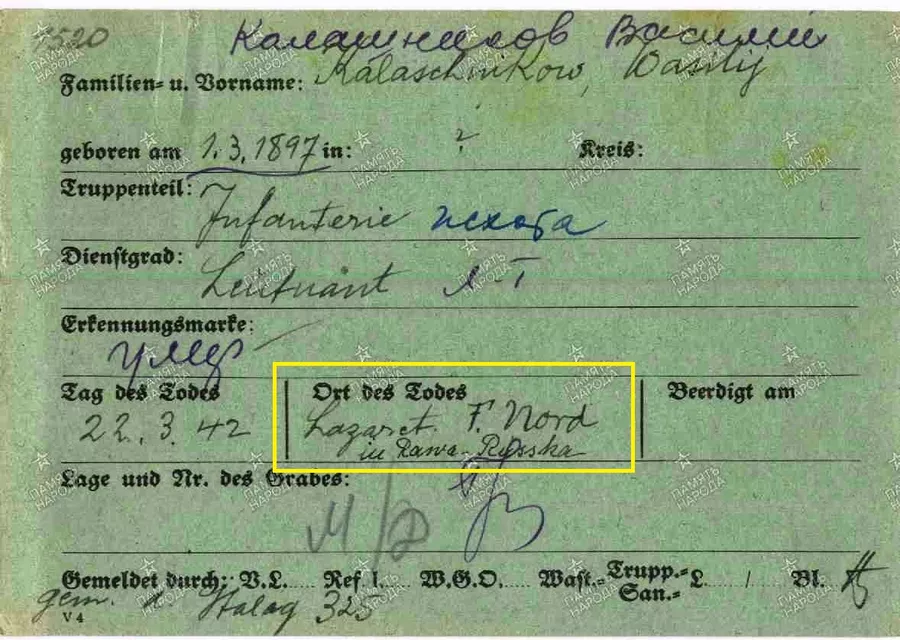 7520
Калашников Василий
Familien- u. Vorname: Kalaschnikow, Wasilij
geboren am 1.3.1897 in: ? Kreis:
Truppenteil: Infanterie пехота
Dienstgrad: Leutnant л-т
Erkennungsmarke:
умер
Tag des Todes Ort des Todes Beerdigt am
22.3.42 Lazaret F. Nord
in Rawa-Russka
Lage und Nr. des Grabes:
Gemeldet durch: V.L. Ref I. W.G.O. Wast.- Trupp.- San.- L / Bl.
gem. Stalag 325
V 4
ПАМЯТЬ НАРОДА